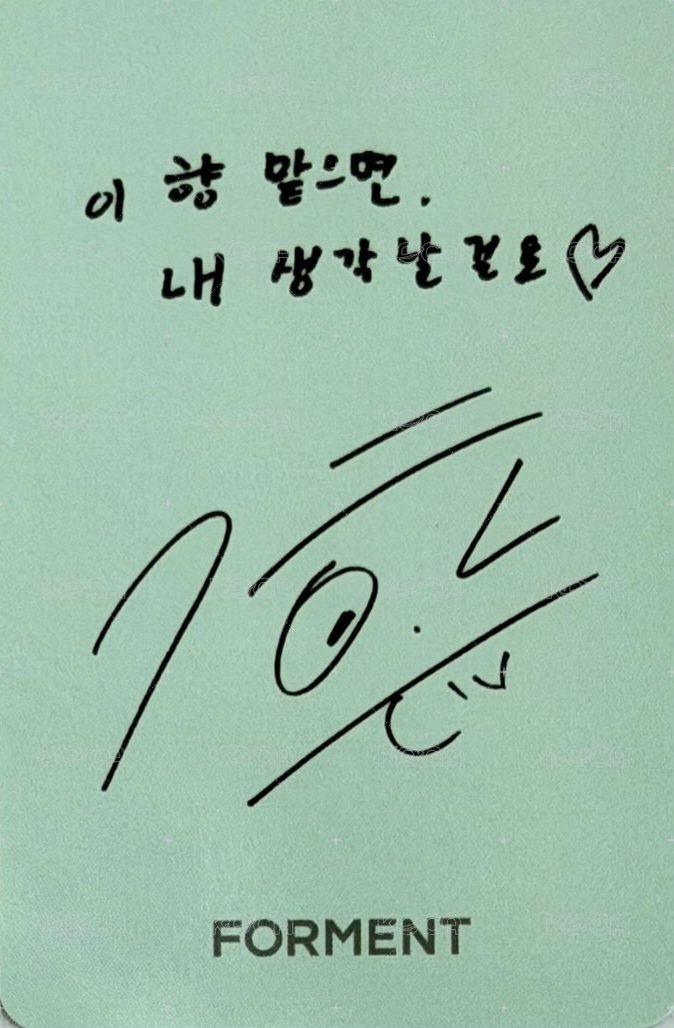 이 향 맡으면.
내 생각날 걸요♡
FORMENT